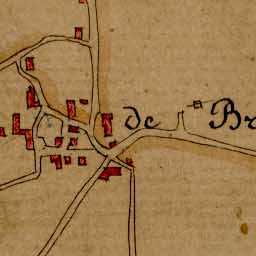 de Br